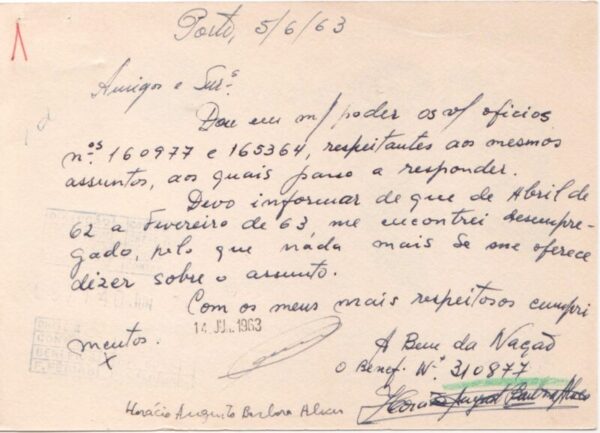 Porto, 5/6/63
Amigos e Snrs.
Dou em m/ poder os v/ oficios
nos 160977 e 165364, respeitantes aos mesmos
assuntos, aos quais passo a responder.
Devo informar de que de Abril de
62 a Fevereiro de 63 me encontrei desempre-
gado, pelo que náda mais se me oferece
dizer sobre o assunto.
Com os meus mais respeitosos cumpri
mentos.
14 JUN. 1963
A Bem da Nação
O Benef. Nº 310877
Horácio Augusto Barbosa Alves